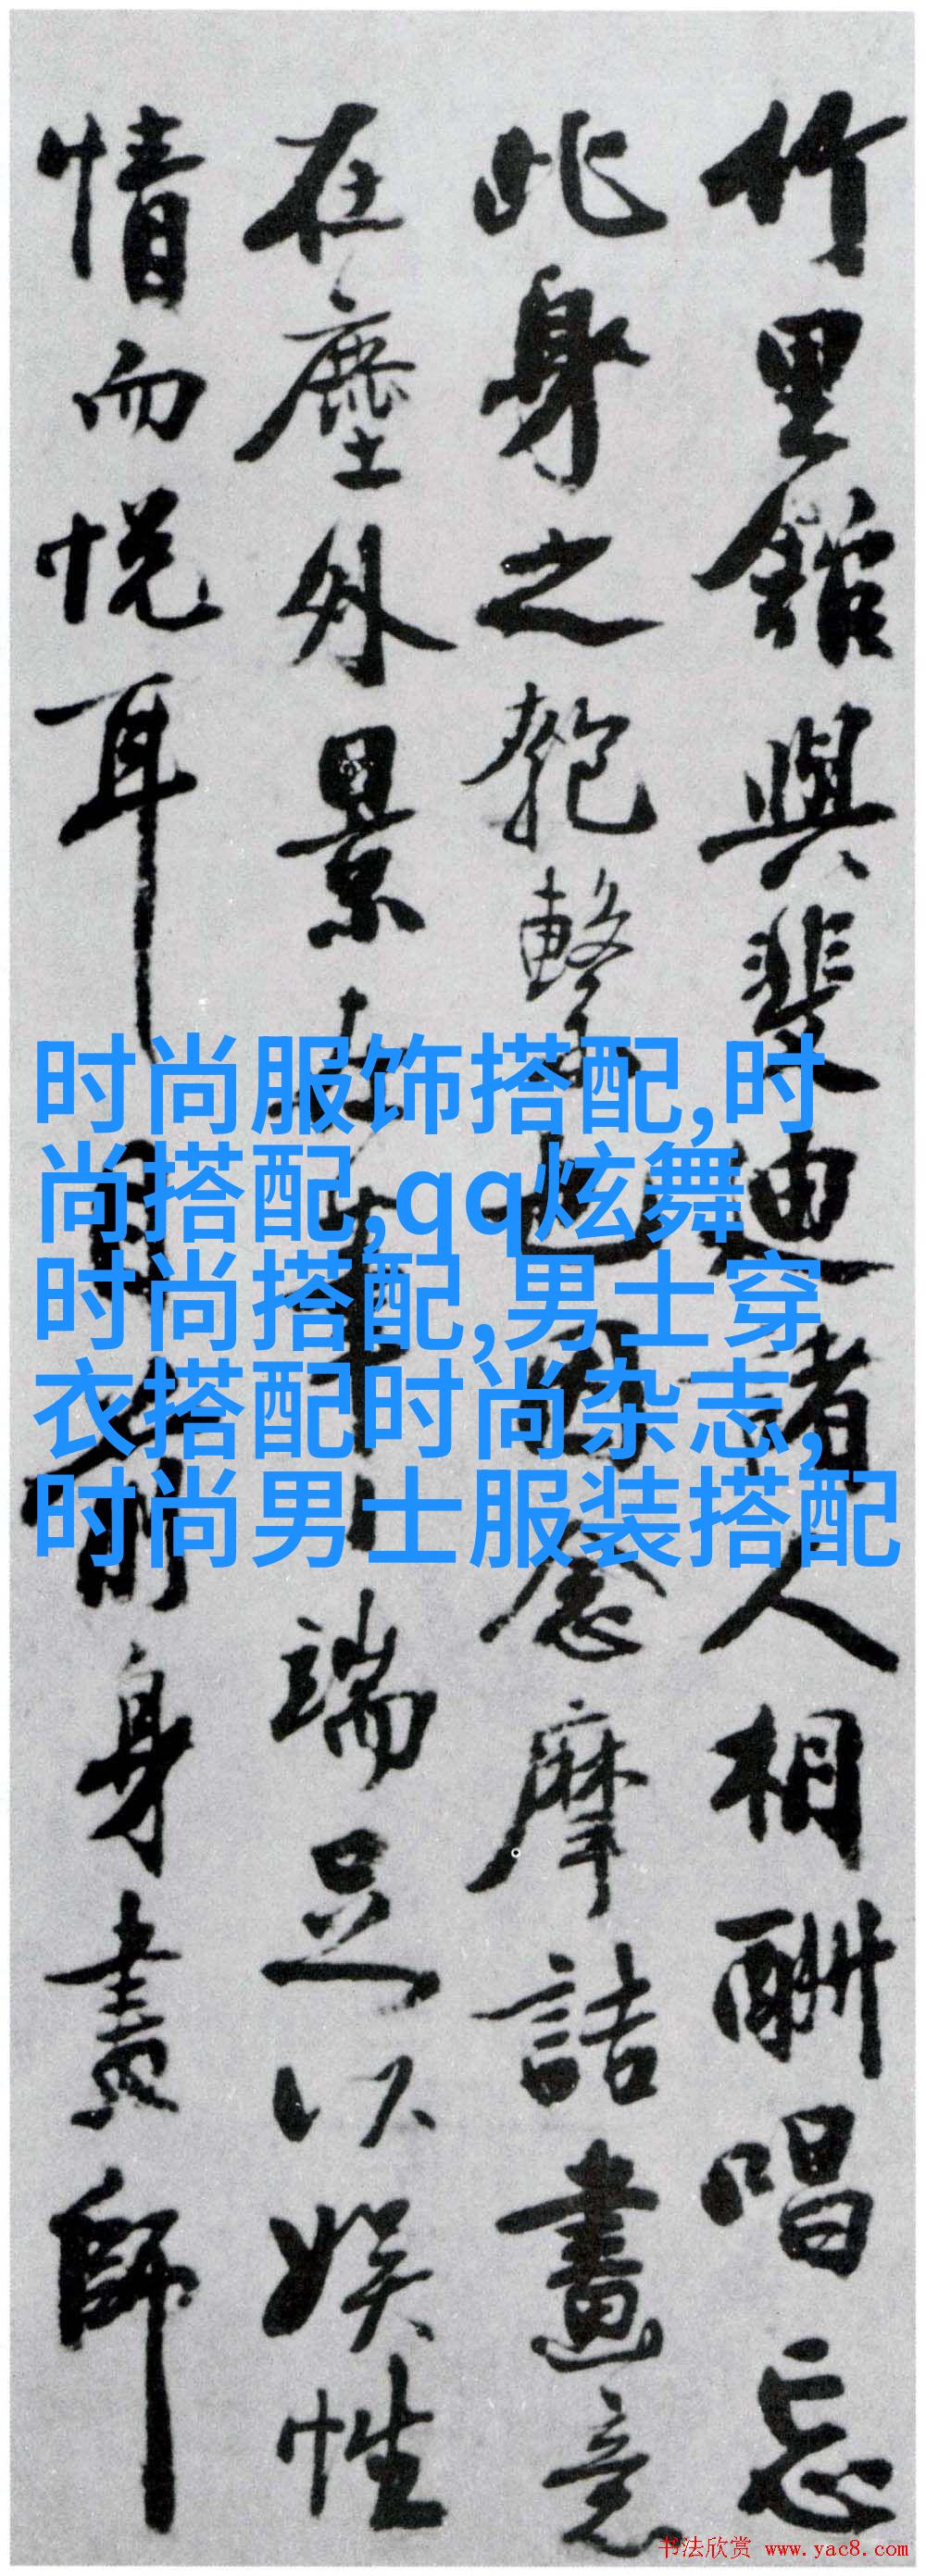 竹里館與裴迪諸人相酬唱忘
此身之匏繫也因念摩詰畫意
在塵外景在筆端足以娛性
情而悅耳目前身畫師
时尚服饰搭配,时
尚搭配,qq炫舞
时尚搭配,男士穿
衣搭配时尚杂志,
时尚男士服装搭配
书法欣赏 www.yac8.com